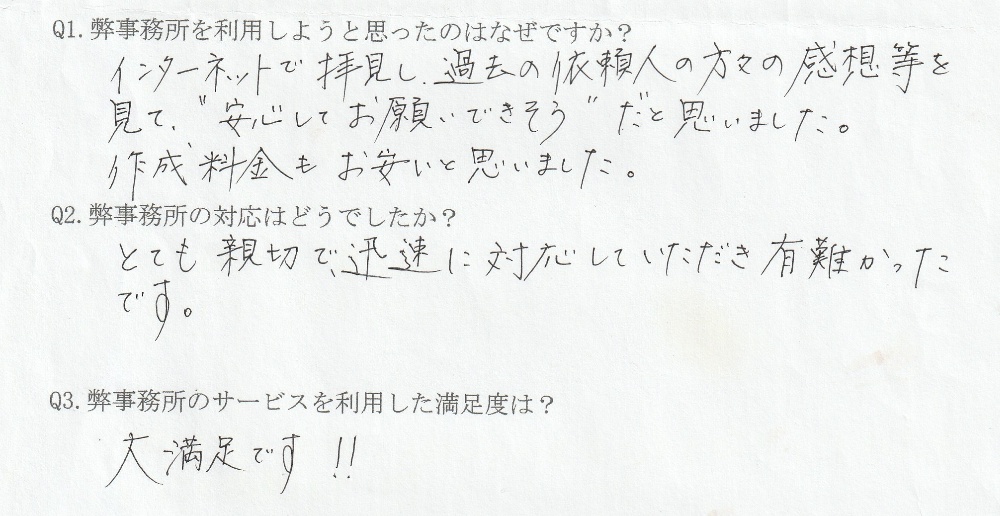 Q1. 弊事務所を利用しようと思ったのはなぜですか？
インターネットで拝見し、過去の依頼人の方々の感想等を
見て、"安心してお願いできそう"だと思いました。
作成料金もお安いと思いました。
Q2. 弊事務所の対応はどうでしたか？
とても親切で、迅速に対応していただき有難かった
です。
Q3. 弊事務所のサービスを利用した満足度は？
大満足です!!